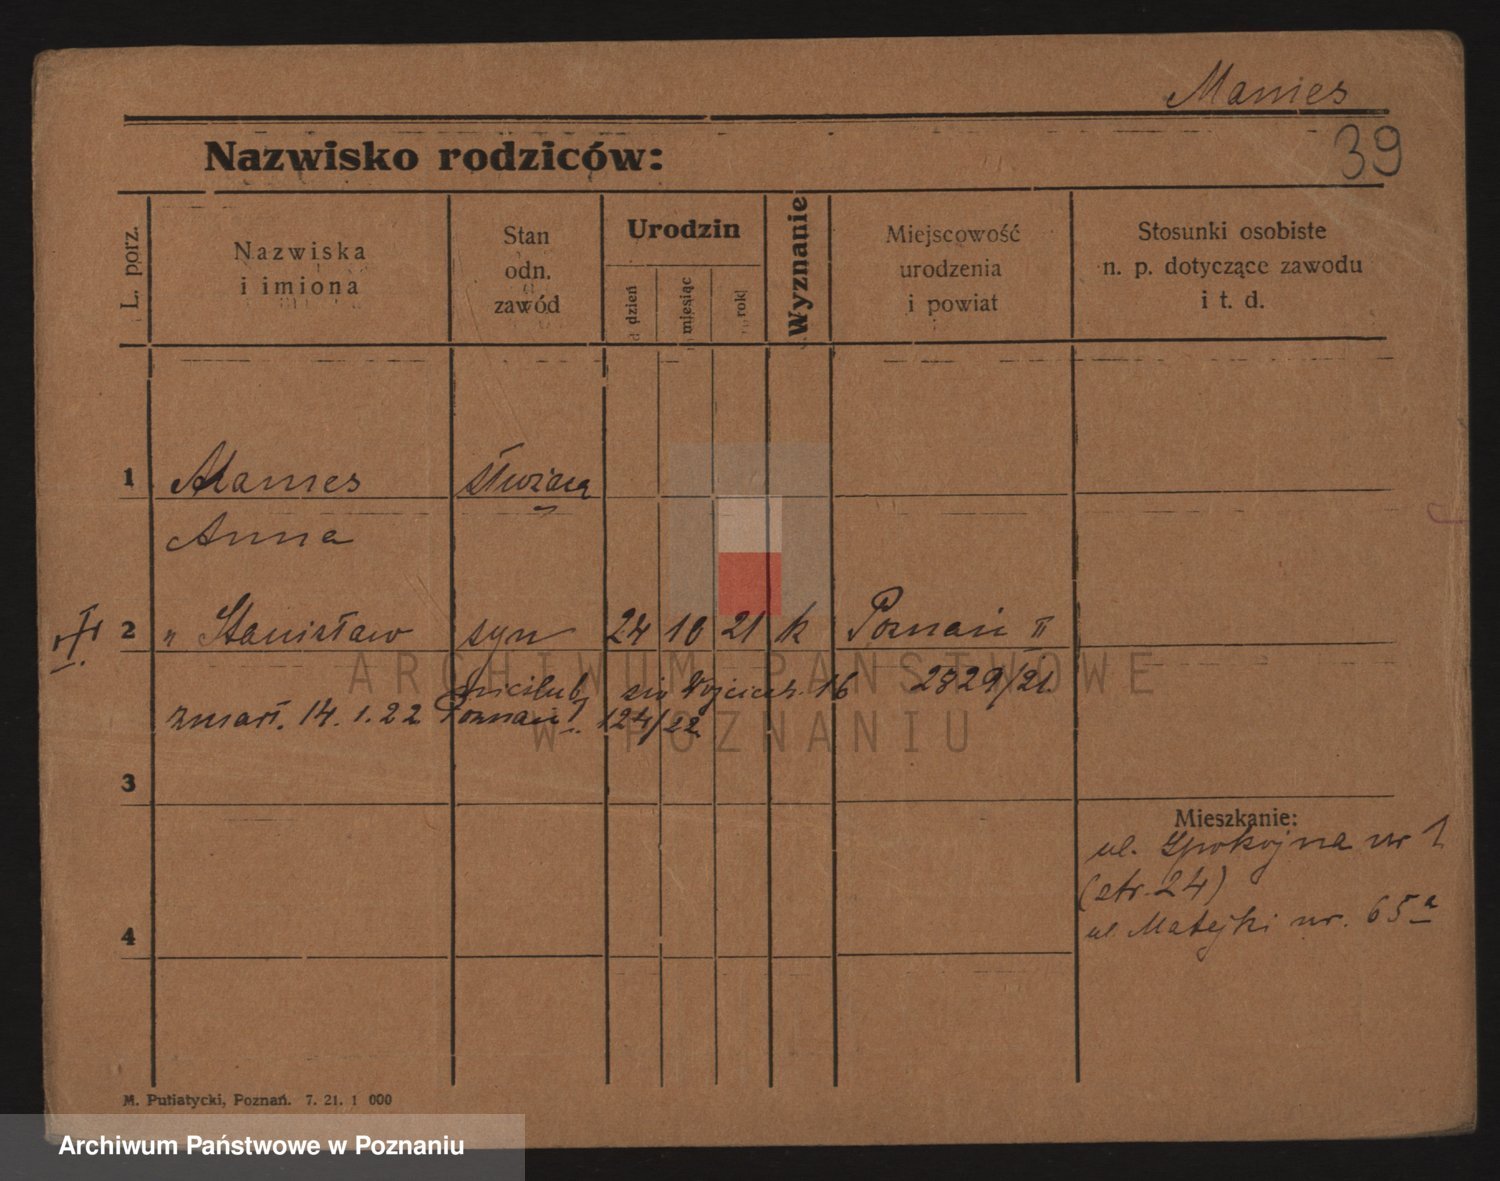 Manies
39
Nazwisko rodziców:
L. porz.
Nazwiska
i imiona
Stan
odn.
zawód
Urodzin
dzień
miesiąc
rok
Wyznanie
Miejscowość
urodzenia
i powiat
Stosunki osobiste
n. p. dotyczące zawodu
i t. d.
1 Manies służąca
Anna
2 " Stanisław syn 24 10 21 k Poznań II
2829/21
zmarł. 14.1.22 Poznań 124/22
3
4
Mieszkanie:
ul. Spokojna nr 1
(str. 24)
ul Matejki nr. 65a
M. Putiatycki, Poznań. 7. 21. 1 000
ARCHIWUM PAŃSTWOWE
W POZNANIU
Archiwum Państwowe w Poznaniu